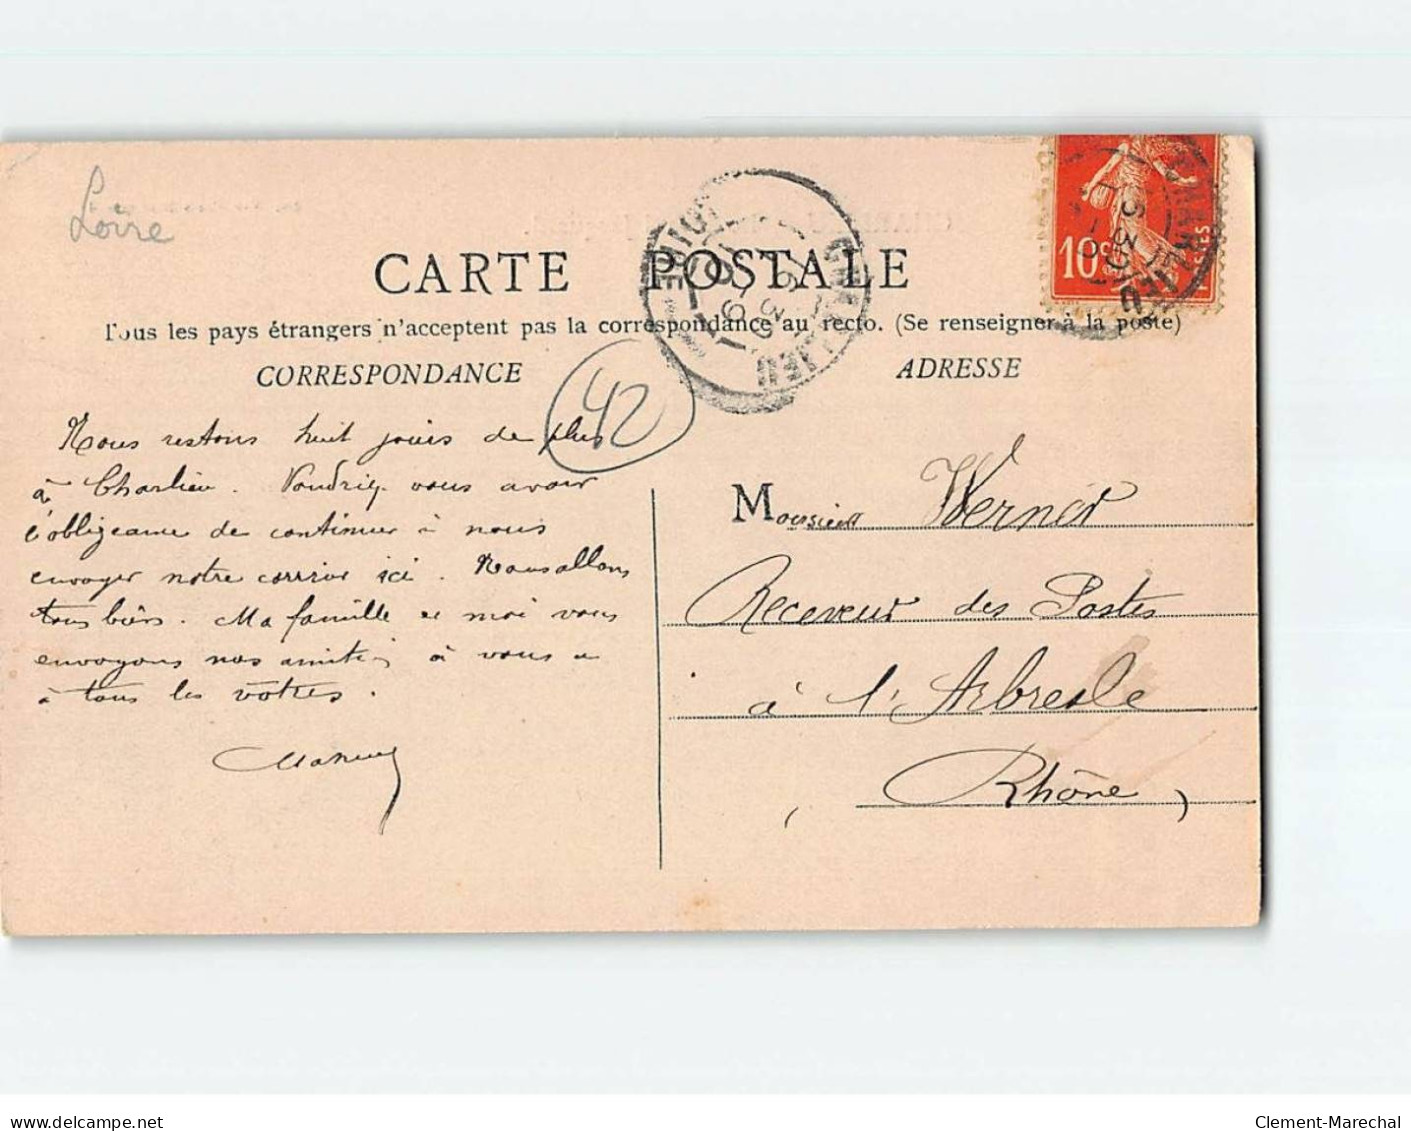 Loire
CARTE POSTALE
Tous les pays étrangers n'acceptent pas la correspondance au recto. (Se renseigner à la poste)
CORRESPONDANCE
ADRESSE
42
CHARLIEU
LOIRE
10c
Nous restons huit jours de plus
à Charlieu. Voudriez vous avoir
l'obligeance de continuer à nous
envoyer notre corrive ici. Nous allons
tous biens. Ma famille et moi vous
envoyons nos amitiés à vous et
à tous les vôtres.
Monsieur Werner
Receveur des Postes
à l'Arbresle
Rhône
delcampe.net
Clement-Marechal